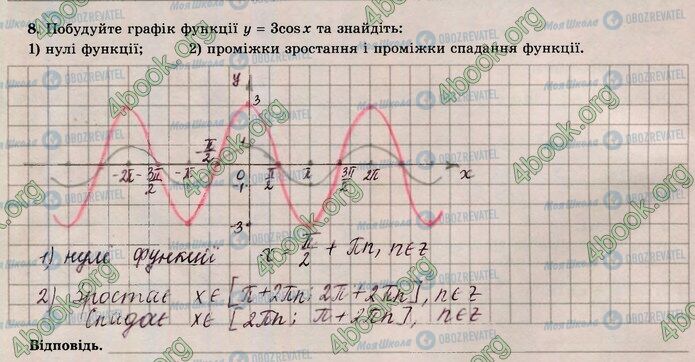 8. Побудуйте графік функції y = 3cos x та знайдіть:
1) нулі функції; 2) проміжки зростання і проміжки спадання функції.
y
3
1
-π/2
-2π -3π/2 -π 0 π/2 π 3π/2 2π x
-1
-3
1) нулі функции x = π/2 + πn, n∈z
2) зростає x∈[π+2πn; 2π+2πn], n∈z
Спадає x∈[2πn; π+2πn], n∈z
Відповідь.
4book.org
Моя Школа
OBOZREVATEL